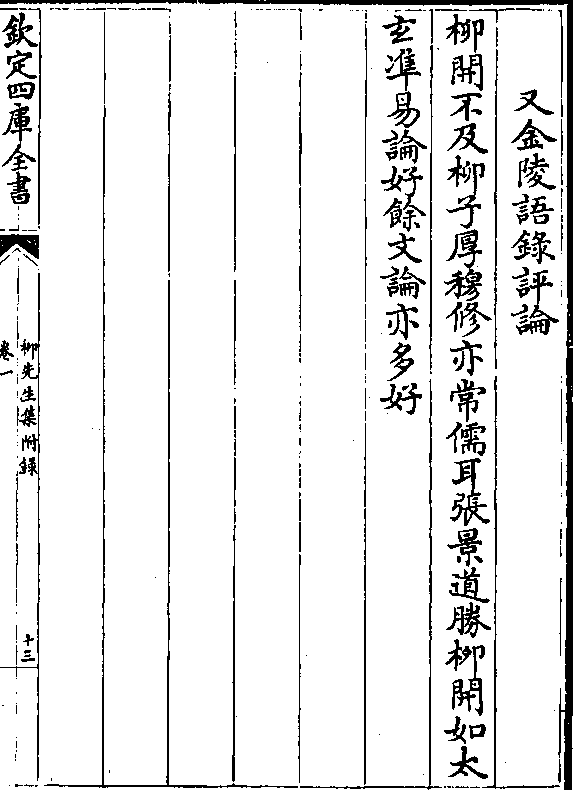 又金陵語錄評論
柳開不及柳子厚穆修亦常儒耳張景道勝柳開如太
玄準易論好餘文論亦多好
欽定四庫全書
柳先生集附錄
卷一
十三